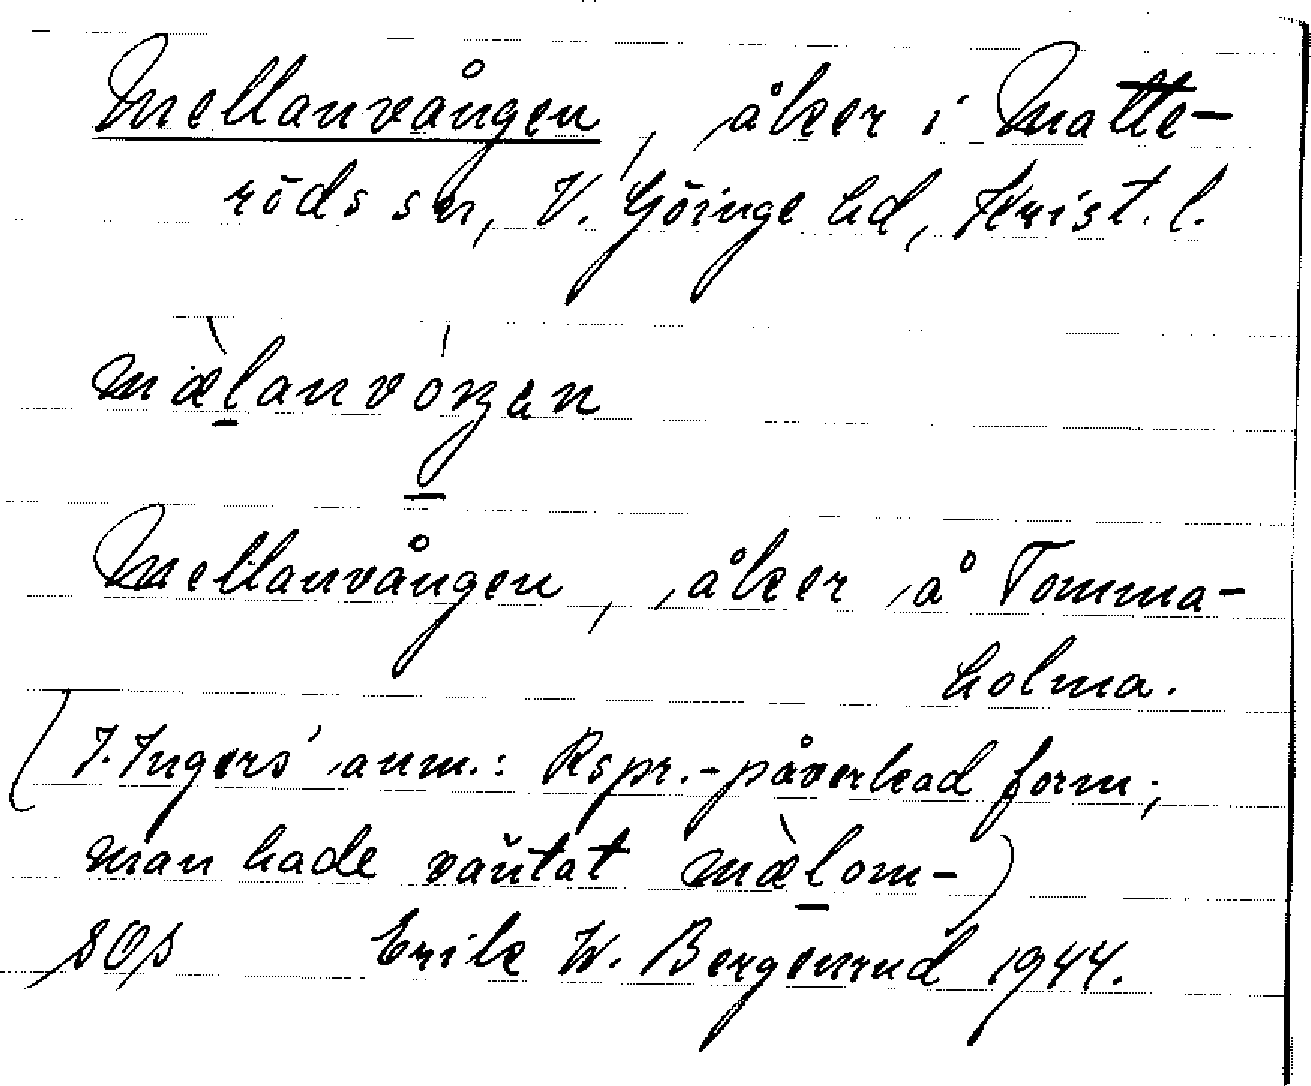 Mellanvången, åker i Matte-
röds sn, V. Göinge hd, Krist. l.
mæ̀l̲anvóŋ̲an
Mellanvången, åker å Tomma-
holma.
(I. Ingers' anm.: Rspr.-påverkad form;
man hade väntat mæ̀l̲om-)
Erik W. Bergenrud 1944.